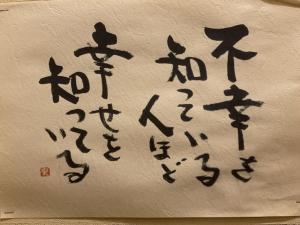 不幸を
知っている
人ほど
幸せを
知っている